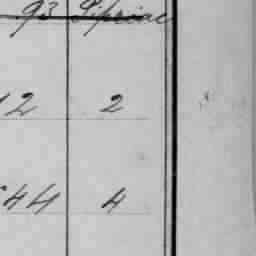 93
12 2
44 4